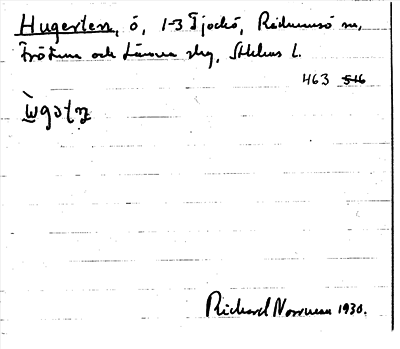 Hugerten, ö, 1-3 Tjockö, Rådmansö sn,
Frötuna och Länna skg, Sthlms l.
463 546
Richard Norrman 1930.